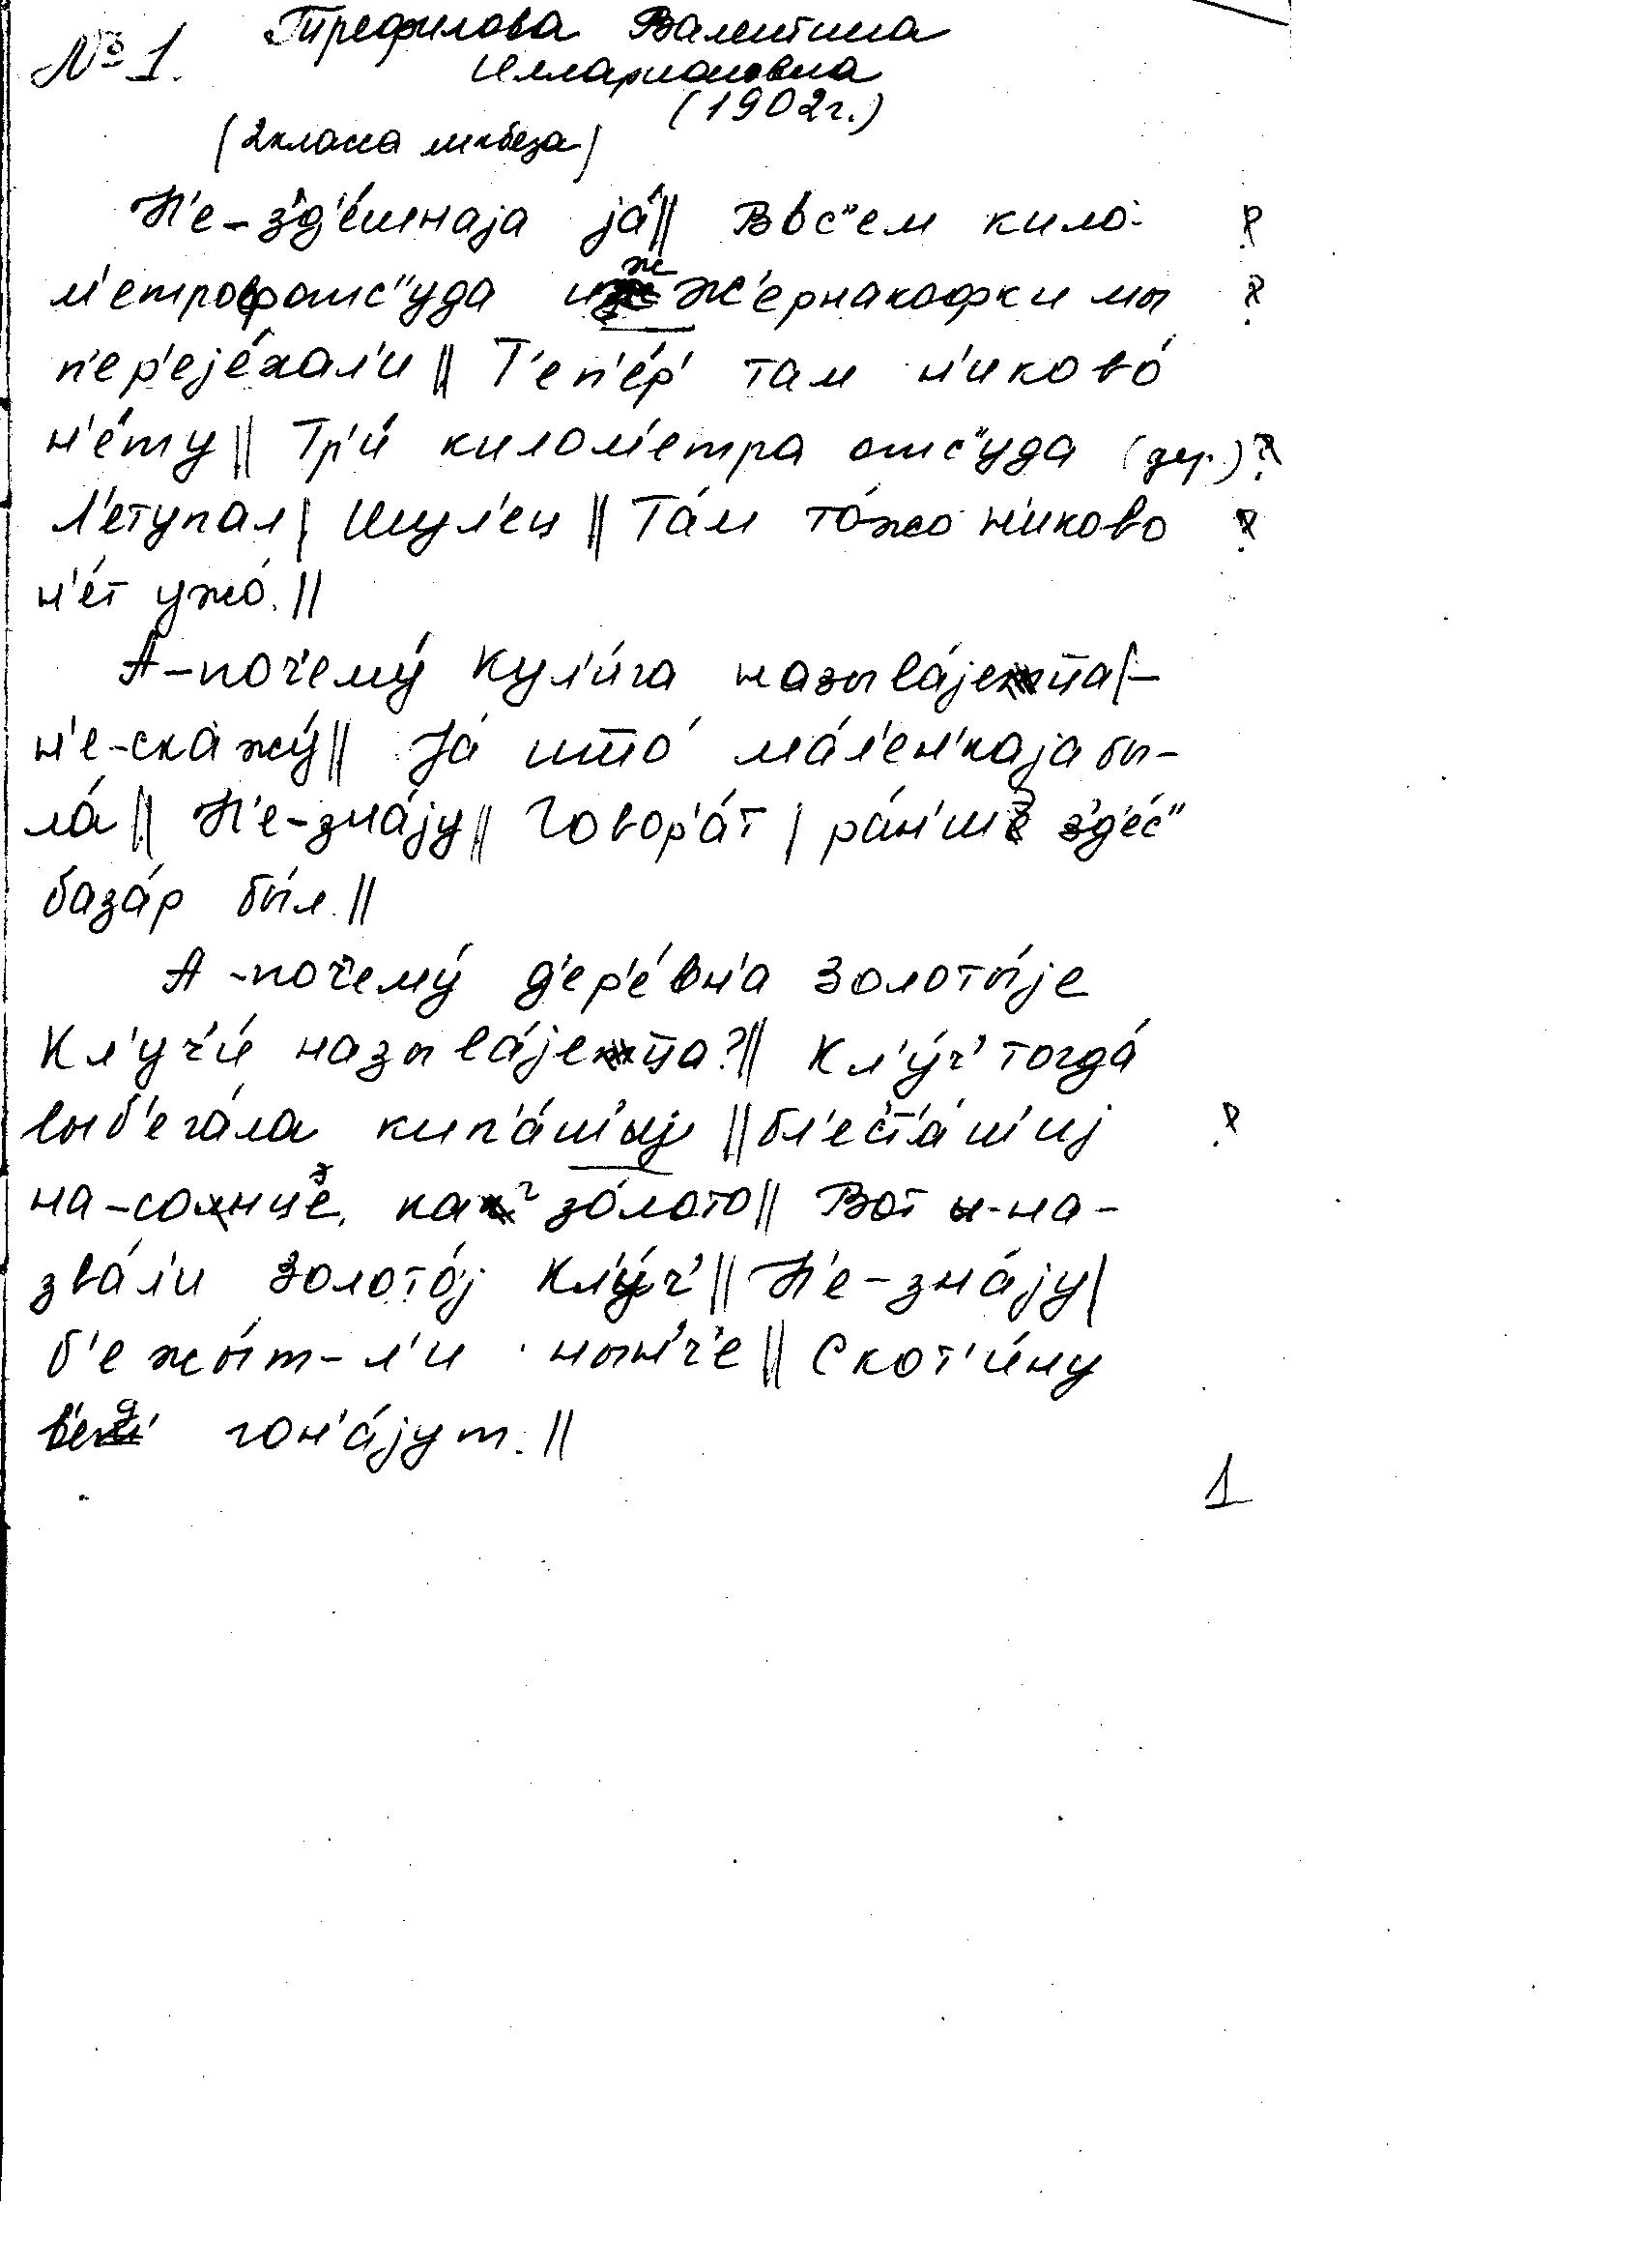 № 1. Трефилова Валентина
Илларионовна
(1902г.)
(2 класса ликбеза)
Н'е-з'д'е́шнаjа jа́ || В вос"ем кило- ?
м'етроф отс"уда иж Ж'ернакофки мы ?
п'ер'еjе́хал'и || Т'еп'е́р' там н'иково́
н'е́ту || Тр'и́ килом'етра отс"уда (дер.) ?
Л'етупал | Шул'ец || Та́м то́жо н'иково ?
н'е́т ужо́. ||
А-поч'ему́ Кул'и́га называ́jеца | -
н'е-скажу́ || Jа́ што́ ма́л'ен'каjа бы-
ла́ || Н'е-зна́jу || Говор'а́т | ра́н'шэ з'д'е́с"
база́р бы́л. ||
А-поч'ему́ д'ер'е́вн'а Золоты́jе
Кл'уч'и́ называ́jеца? || Кл'у́ч' тогда́
выб'ега́ла кип'а́ш'ыj || бл'ест'а́ш'иj ?
на-сонцэ, каг зо́лото || Вот ы-на-
зва́л'и Золото́j Кл'у́ч' || Н'е-зна́jу |
б'ежы́т-л'и нын'ч'е || Скот'и́ну
в'ед' гон'а́jут. ||
1